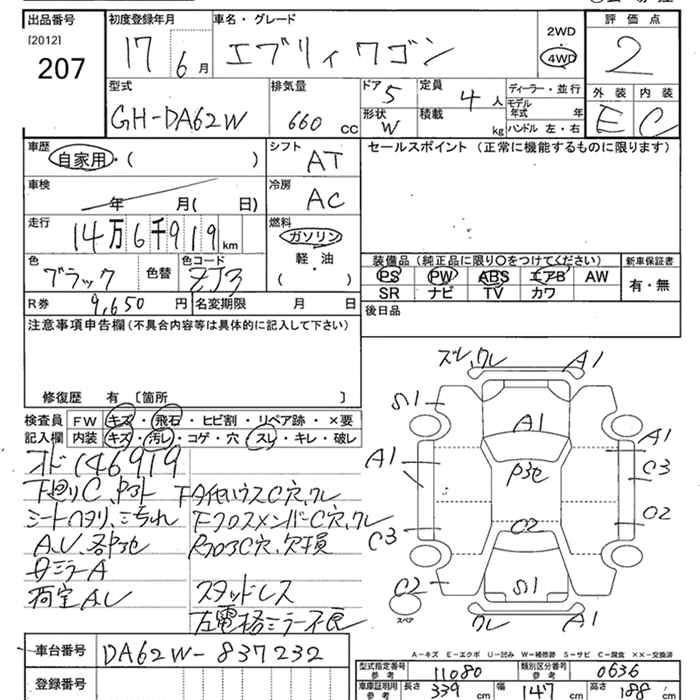 出品番号 [2012] 207
初度登録年月 17 6月
車名・グレード エブリィワゴン
2WD・4WD
評価点 2
外装 E 内装 C
型式 GH-DA62W
排気量 660 cc
ドア 5 形状 W
定員 4人 積載 kg
ディーラー・並行
モデル年式 年
ハンドル 左・右
車歴 自家用・( )
シフト AT
車検 年 月( 日)
冷房 AC
走行 14万6千919km
燃料 ガソリン 軽・油 ( )
色 ブラック 色替
色コード ZJ3
R券 9,650円
名変期限 月 日
セールスポイント(正常に機能するものに限ります)
装備品(純正品に限り○をつけてください)
PS PW ABS エアB AW
SR ナビ TV カワ
新車保証書 有・無
後日品
注意事項申告欄(不具合内容等は具体的に記入して下さい)
修復歴 有 〔箇所 〕
検査員 FW キズ・飛石・ヒビ割・リペア跡・×要
記入欄 内装 キズ・汚レ・コゲ・穴・スレ・キレ・破レ
オド146919
下廻りC
シートヘタリ、こすれ
A,U
ミラーA
荷室A,U
C穴
FクロスメンバーC穴
C穴、欠損
スタッドレス
左電格ミラー不良
ズレ,ワレ A1
S1
A1
A1
A1
C3
C2
C3
C2
C2
S1
ワレ A1
スペア
A-キズ E-エクボ U-凹み W-補修跡 S-サビ C-腐食 XX-交換済
車台番号 DA62W-837232
登録番号
型式指定番号 参考 11080
類別区分番号 参考 0636
車庫証明用 参考 長さ 339 cm 幅 147 cm 高さ 188 cm